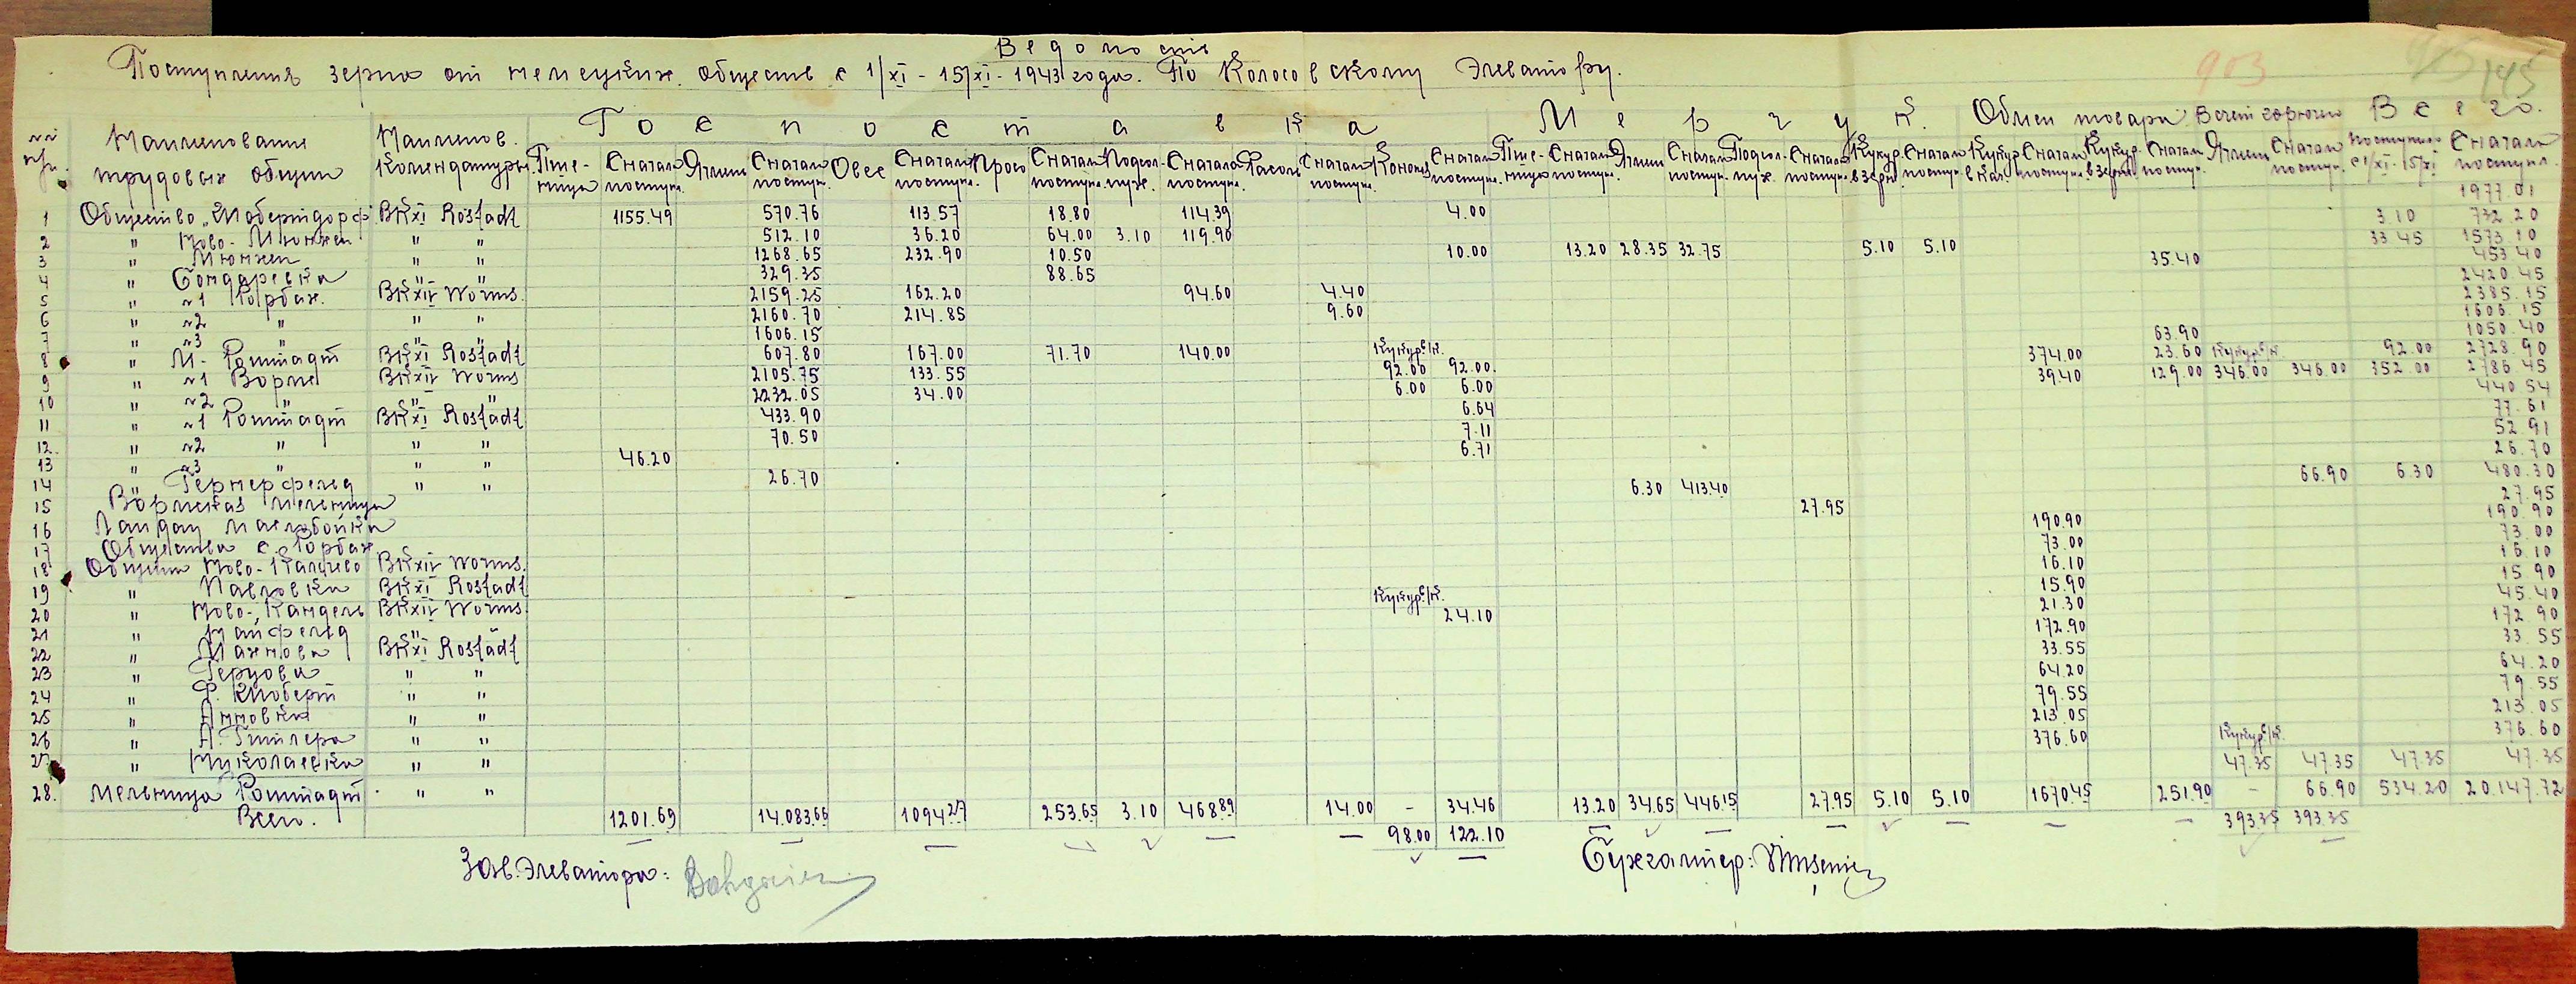 Ведомость
Поступления зерна от немецких обществ с 1/XI - 15/XI - 1943 года. По Колосовскому Элеватору.
903
145
Госпоставка Мерчук Обмен товара В счет горючего Всего.
№№ п/п. Наименование трудовых общин Наименов. Комендатуры Пшеница С начала поступл. Ячмень С начала поступл. Овес С начала поступл. Просо С начала поступл. Подсолнух. С начала поступл. Фасоль С начала поступл. Конопля С начала поступл. Пшеница С начала поступл. Ячмень С начала поступл. Подсолнух. С начала поступл. Кукур. в зерне С начала поступл. Кукур. в кач. С начала поступл. Кукур. в зерне С начала поступл. Ячмень С начала поступл. Поступило с 1/XI-15/XI С начала поступл.
1 Общество "Шобертдорф" BK XI Rostadt 1155.49 570.76 113.57 18.80 114.39 4.00 1977.01
2 " Ново-Мюнхен " " 512.10 36.20 64.00 3.10 119.90 3.10 732.20
3 " Мюнхен " " 1268.65 232.90 10.50 10.00 13.20 28.35 32.75 5.10 5.10 33.45 1573.10
4 " Бондаревка " " 329.35 88.65 35.40 453.40
5 " №1 Рорбах. BK XIV Worms. 2159.25 162.20 94.60 4.40 2420.45
6 " №2 " " " 2160.70 214.85 9.60 2385.15
7 " №3 " " " 1606.15 1606.15
8 " М-Роштадт BK XI Rostadt 607.80 167.00 71.70 140.00 63.90 1050.40
9 " №1 Вормс BK XIV Worms 2105.75 133.55 Кукур. в/к. 92.00 92.00. 374.00 23.60 92.00 2728.90
10 " №2 " " " 2232.05 34.00 6.00 6.00 39.40 129.00 Кукур. в/к. 346.00 346.00 352.00 2786.45
11 " №1 Роштадт BK XI Rostadt 433.90 6.64 440.54
12. " №2 " " " 70.50 7.11 77.61
13 " №3 " " " 46.20 6.71 52.91
14 " Гернерсфельд " " 26.70 26.70
15 Вормская мельница 6.30 413.40 66.90 6.30 480.30
16 Ландау маслобойка 27.95 27.95
17 Общества с. Рорбах 190.90 190.90
18 Общины Ново-Калчево BK XIV Worms. 73.00 73.00
19 " Павловка BK XI Rostadt 16.10 16.10
20 " Ново-Кандель BK XIV Worms 15.90 15.90
21 " Найфельд " " Кукур. в/к. 24.10 21.30 45.40
22 " Махмова BK XI Rostadt 172.90 172.90
23 " Герцова " " 33.55 33.55
24 " Ф. Шоберт " " 64.20 64.20
25 " Анновка " " 79.55 79.55
26 " А. Гитлера " " 213.05 213.05
27 " Николаевка " " 376.60 376.60
28. Мельница Роштадт. " " Кукур. в/к. 47.35 47.35 47.35 47.35
Всего. 1201.69 14.083.66 1094.27 253.65 3.10 468.89 14.00 - 34.46 13.20 34.65 446.15 27.95 5.10 5.10 1670.45 251.90 - 66.90 534.20 20.147.72
98.00 122.10 393.35 393.35
Зав. Элеватора: Бухгалтер: